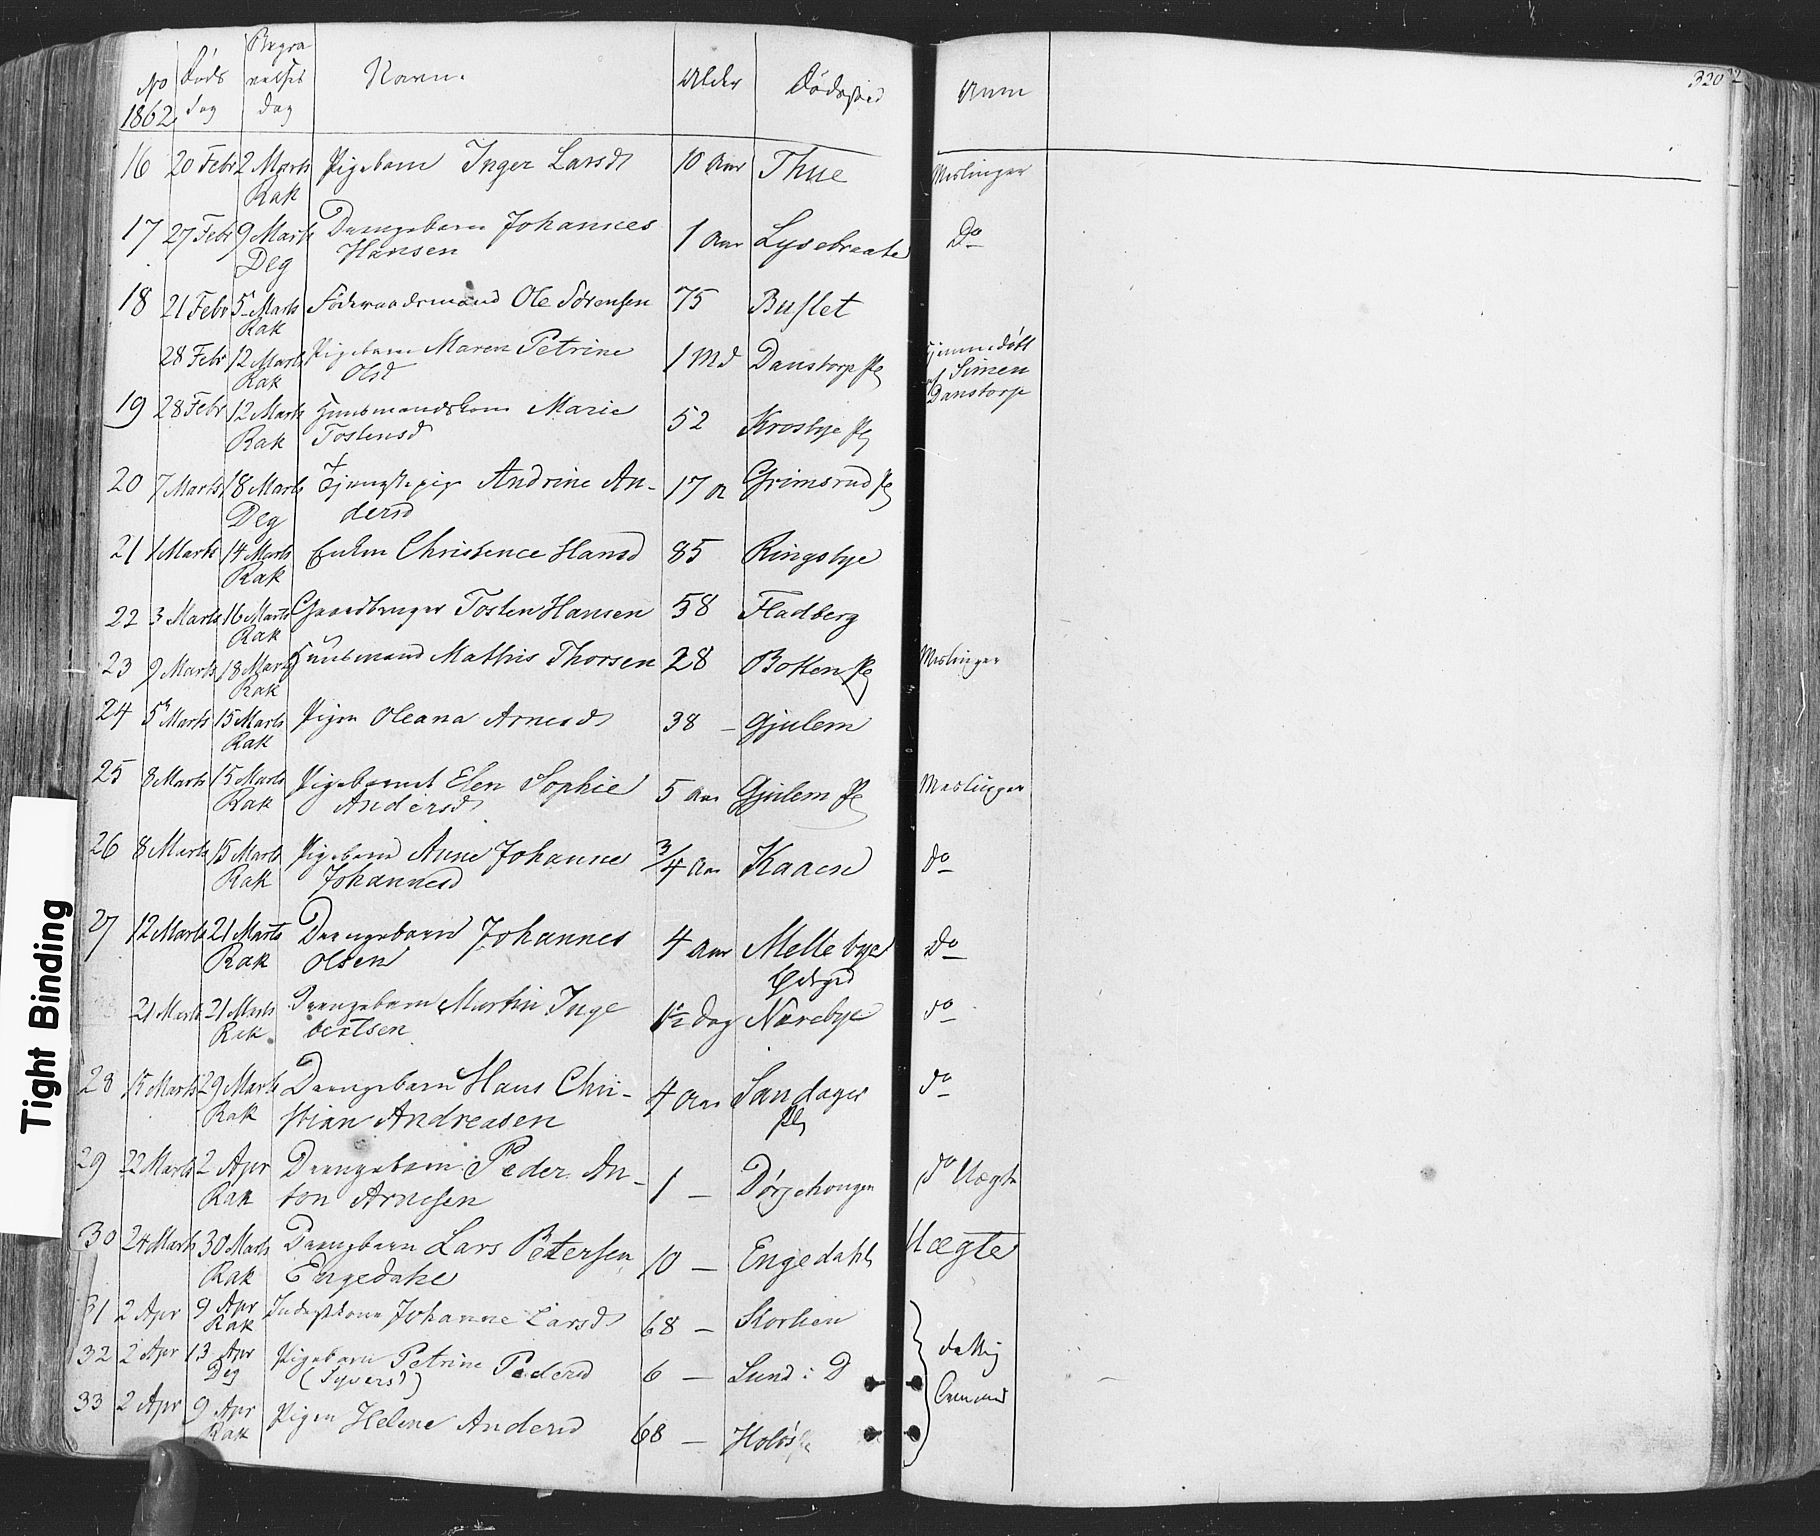 No Døds Begra Navn. Alder Dødssted Anm 320
1862 dag velses
dag
16 20 Febr 2 Marts Pigebarn Inger Larsd 10 Aar Thue Meslinger
Rak
17 27 Febr 9 Marts Drengebarn Johannes 1 Aar Lysebraate Do
Deg Hansen
18 21 Febr 5 Marts Føderaadsmand Ole Sørensen 75 Buslet
Rak
28 Febr 12 Marts Pigebarn Maren Petrine 1 Md Danstorp Pl Hjemmedøbt
Rak Olsd af Simen
Danstorp
19 28 Febr 12 Marts Huusmandskone Marie 52 Krosbye Pl
Rak Tostensd
20 7 Marts 18 Marts Tjenestepige Andrine An- 17 A Grimsrud Pl
Deg dersd
21 1 Marts 14 Marts Enken Christence Hansd 85 Ringsbye
Rak
22 3 Marts 16 Marts Gaardbruger Tosten Hansen 58 Fladberg
Rak
23 9 Marts 18 Marts Huusmand Mathis Thorsen 28 Botten Pl Meslinger
Rak
24 5 Marts 15 Marts Pigen Oleana Arnesd 38 – Gjulem
Rak
25 8 Marts 15 Marts Pigebarnet Elen Sophie 5 Aar Gjulem Pl Meslinger
Rak Andersd
26 8 Marts 15 Marts Pigebarn Anne Johanne 3/4 Aar Kaaen do
Rak Johannesd
27 12 Marts 21 Marts Drengebarn Johannes 4 Aar Mellebye do
Rak Olsen
21 Marts 21 Marts Drengebarn Martin Inge 1 1/2 Dag Narebye do
Rak bertsen
28 15 Marts 29 Marts Drengebarn Hans Chri- 4 Aar Sandager do
Rak stian Andreasen Pl
29 22 Marts 2 Apr Drengebarn Peder An- 1 – Dørjehougen do Uægte
Rak ton Arnesen
30 24 Marts 30 Marts Drengebarn Lars Petersen 10 – Engedahl Uægte
Rak Engedahl
31 2 Apr 9 Apr Inderstkone Johanne Larsd 68 – Storlien
Rak
32 2 Apr 13 Apr Pigebarn Petrine Pedersd 6 – Lund i D
Deg (Syversd)
33 2 Apr 9 Apr Pigen Helene Andersd 68 –
Rak
Tight Binding